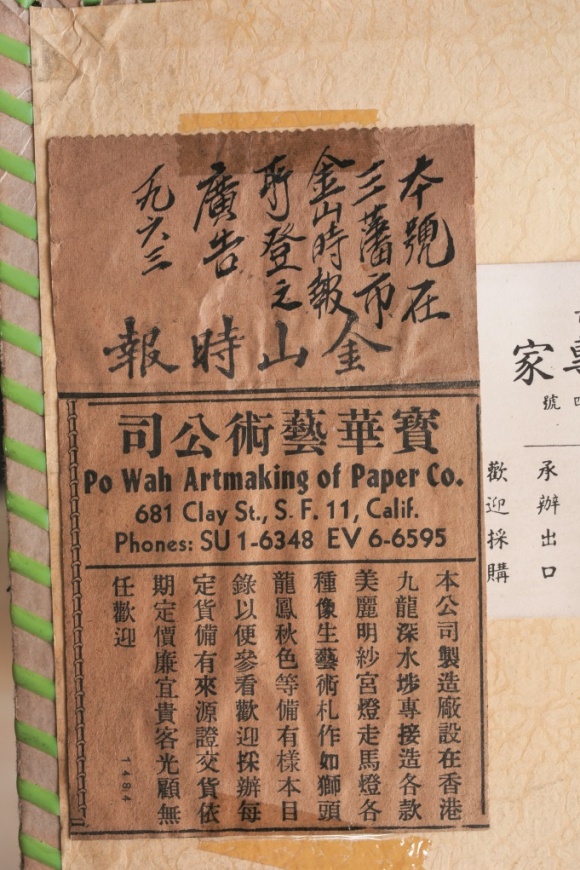 本號在
三藩市
金山時報
所登之
廣告
一九六三
金山時報
寶華藝術公司
Po Wah Artmaking of Paper Co.
681 Clay St., S. F. 11, Calif.
Phones: SU 1-6348 EV 6-6595
本公司製造廠設在香港
九龍深水埗專接造各款
美麗明紗宮燈走馬燈各
種像生藝術札作如獅頭
龍鳳秋色等備有樣本目
錄以便參看歡迎採辦每
定貨備有來源證交貨依
期定價廉宜貴客光顧無
任歡迎
1484
專家
四號
承辦出口
歡迎採購